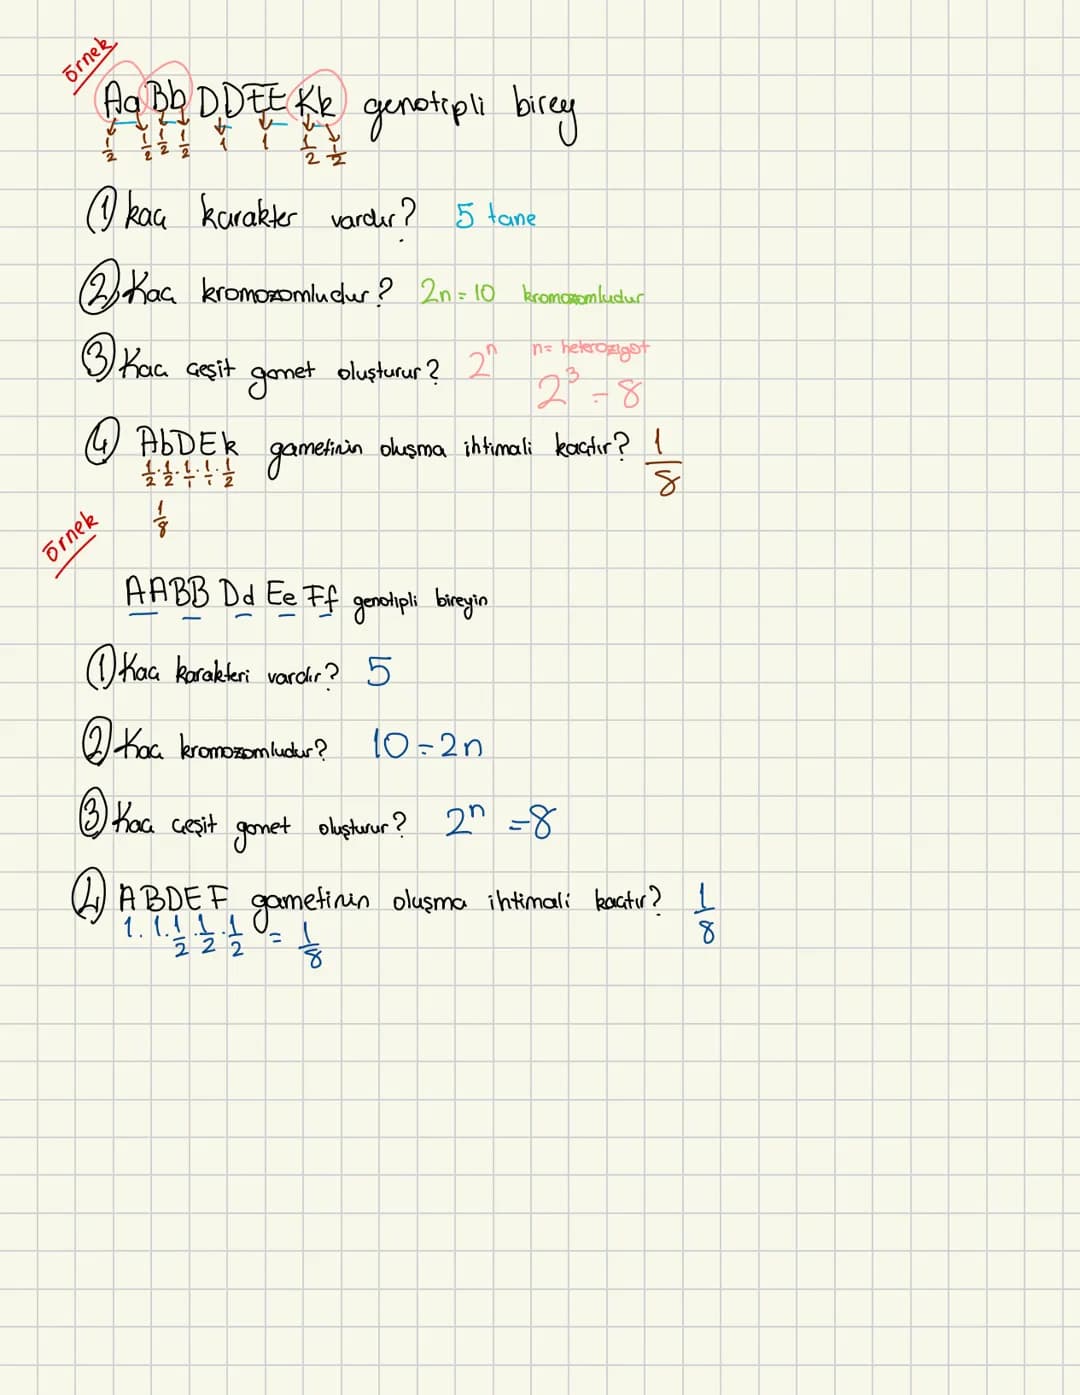 örnek
Aa Bb DD EE Kk genotipli birey
1/2 1/2 1/2 1/2 1 1 1/2 1/2
① kaç karakter vardır? 5 tane
② Kaç kromozomludur? 2n = 10 kromozomludur
③ Kaç çeşit gamet oluşturur? 2ⁿ n = heterozigot
2³ = 8
④ AbDEk gametinin oluşma ihtimali kaçtır? 1/8
1/2 . 1/2 . 1/1 . 1/1 . 1/2
1/8
örnek
AABB Dd Ee Ff genotipli bireyin
① Kaç karakteri vardır? 5
② Kaç kromozomludur? 10 = 2n
③ Kaç çeşit gamet oluşturur? 2ⁿ = 8
④ ABDEF gametinin oluşma ihtimali kaçtır? 1/8
1 . 1 . 1/2 . 1/2 . 1/2 = 1/8